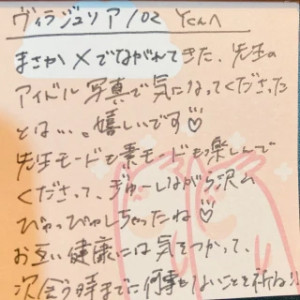 ヴィラジュリア/02 Yくんへ
まさかXでながれてきた、先生の
アイドル写真で気になってくださった
とは…。嬉しいです♡
先生モードも素モードも楽しんで
くださって、ぎゅーしながら沢山
ぴゅっぴゅしちゃったね♡
お互い健康には気をつかって、
次会う時までに何事もないことを祈ね!!